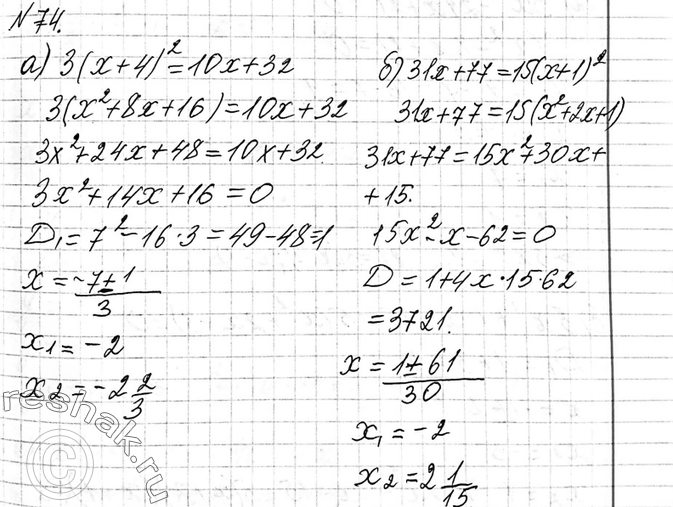 № 74.
а) 3(x+4)²=10x+32
3(x²+8x+16)=10x+32
3x²+24x+48=10x+32
3x²+14x+16=0
D₁=7²-16·3=49-48=1
x = -7±1/3
x₁ = -2
x₂ = -2 2/3
б) 31x+77=15(x+1)²
31x+77=15(x²+2x+1)
31x+77=15x²+30x+
+15.
15x²-x-62=0
D = 1+4x·1562
=3721.
x = 1±61/30
x₁ = -2
x₂ = 2 1/15
reshak.ru